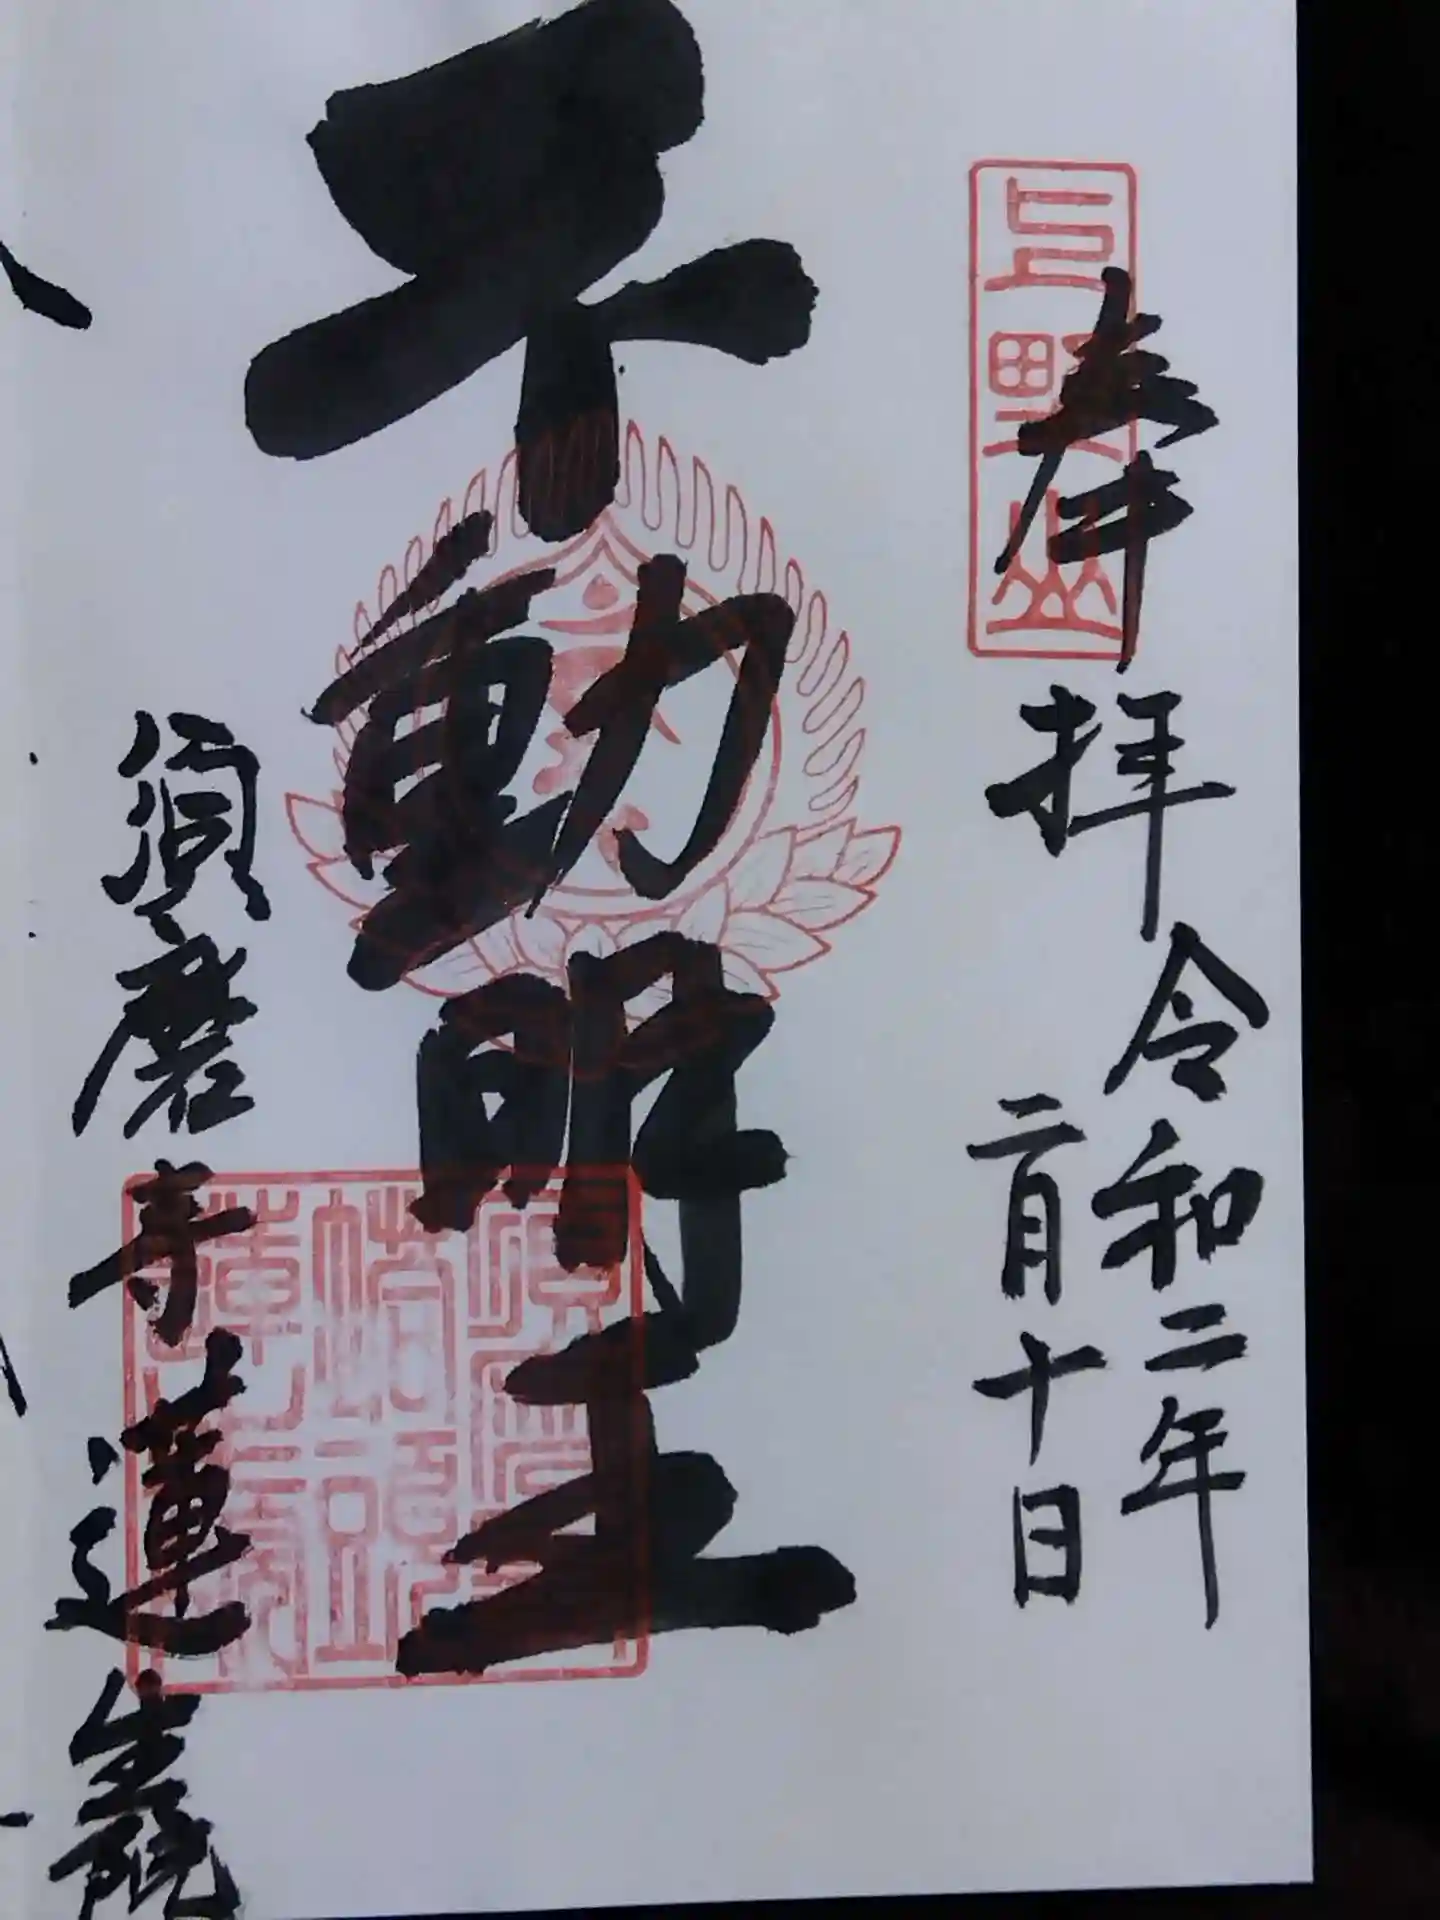 奉拝
上野山
令和二年
二月十日
不動明王
須磨寺蓮生院